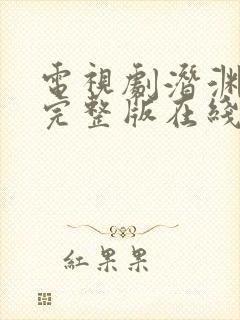 電視劇潛淵
完整版在綫
紅果果